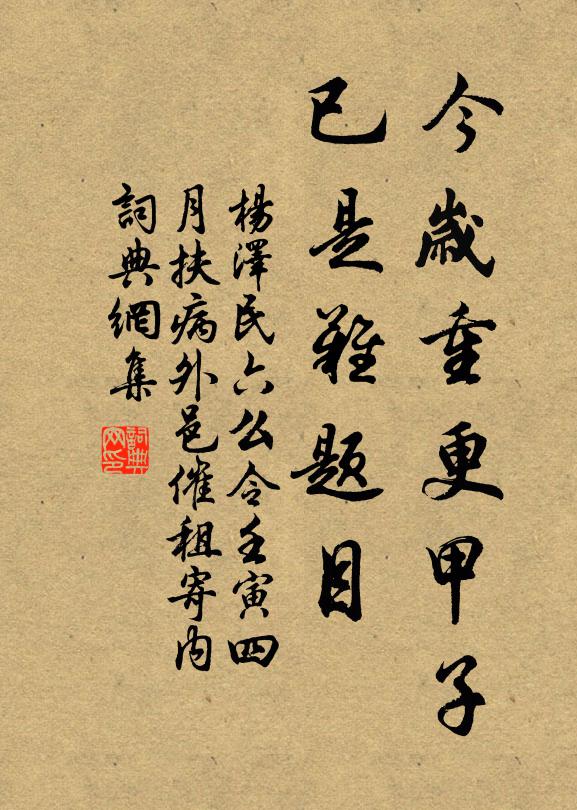 今歲重更甲子
已是難題目
楊澤民六么令壬寅四
月扶病外邑催租寄内
詞典網集
詞典
网印